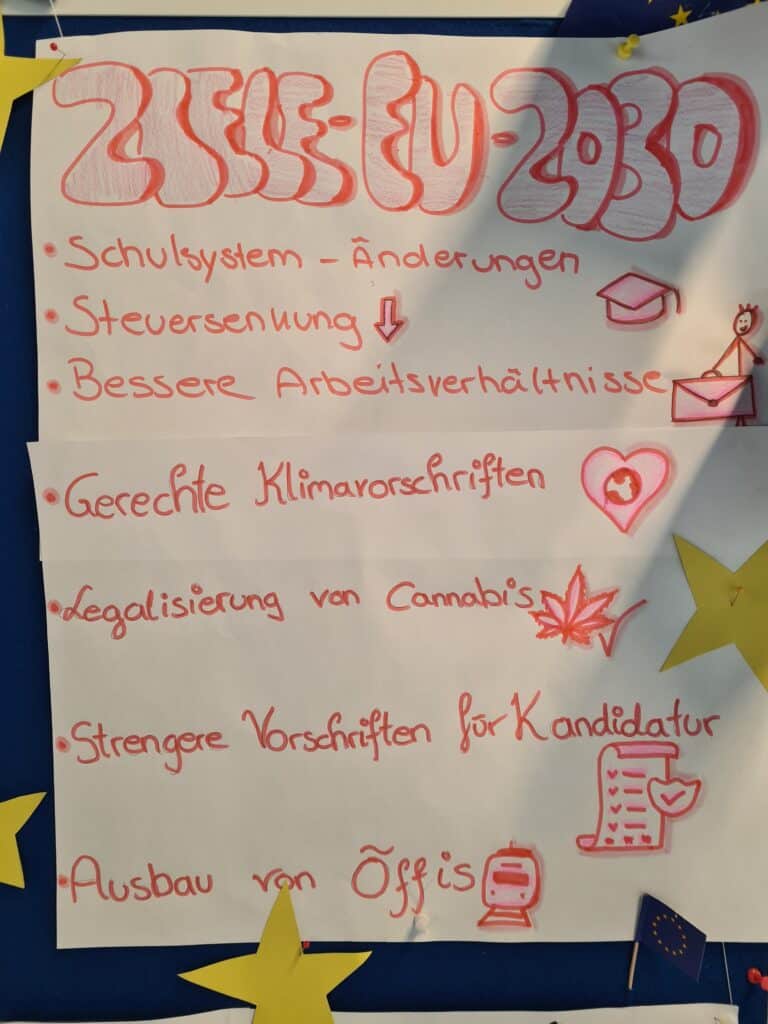 ZIELE-EU-2030
• Schulsystem - Änderungen
• Steuersenkung
• Bessere Arbeitsverhältnisse
• Gerechte Klimavorschriften
• Legalisierung von Cannabis
• Strengere Vorschriften für Kandidatur
• Ausbau von Öffis